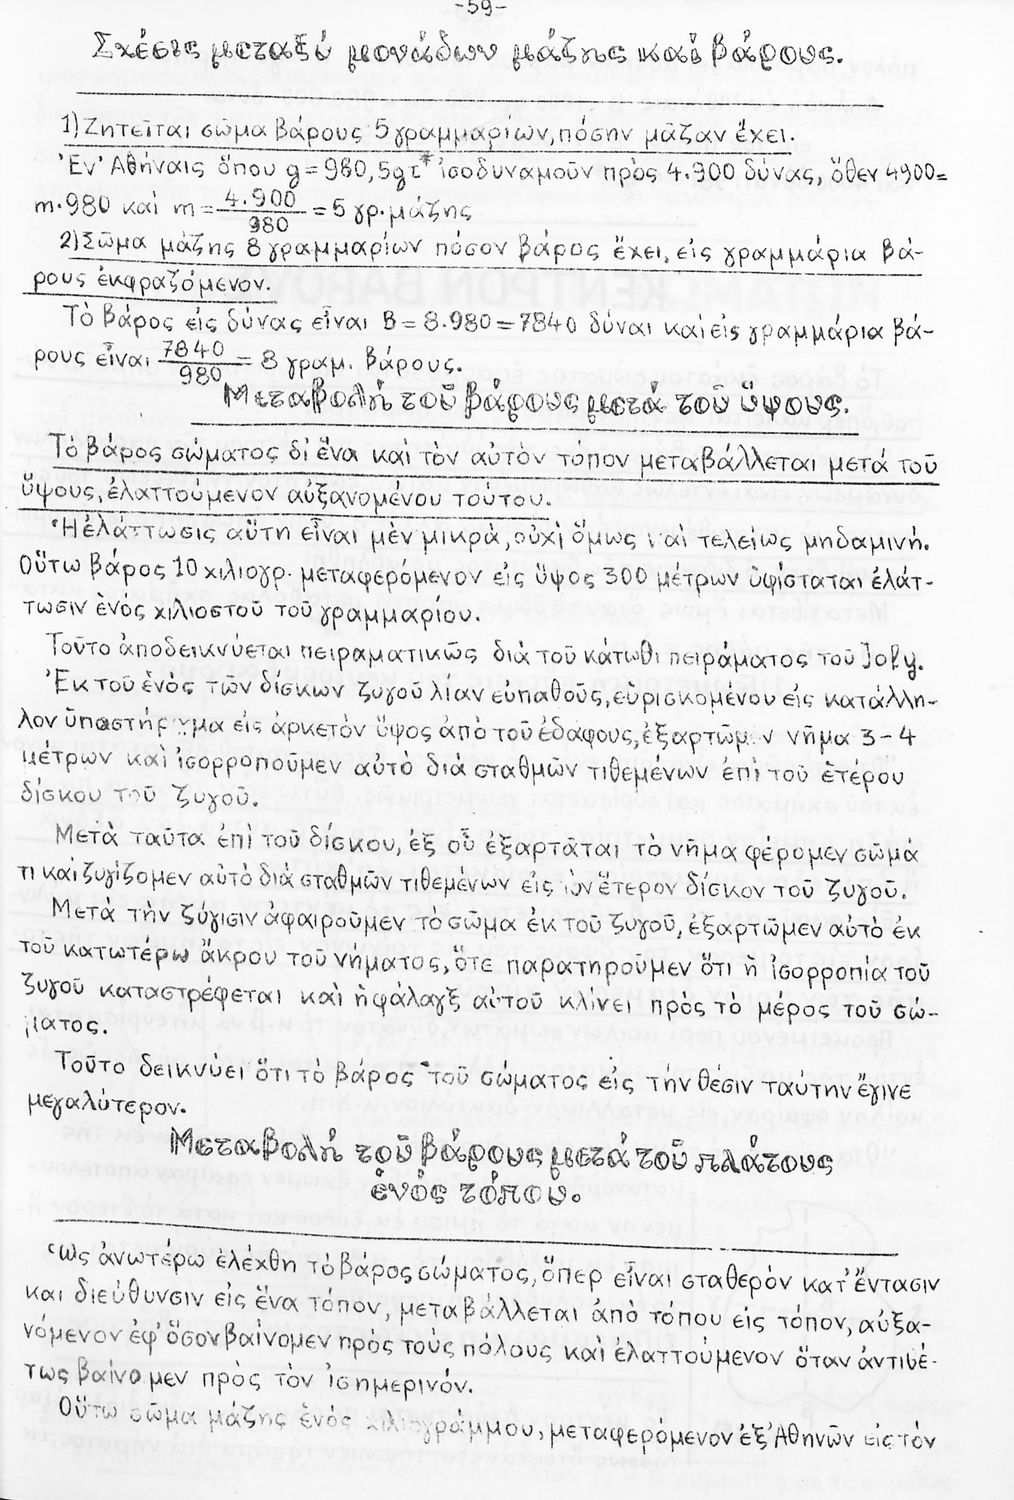 -59-
Σχέσις μεταξύ μονάδων μάζης καί βάρους.
1) Ζητεῖται σῶμα βάρους 5 γραμμαρίων, πόσην μᾶζαν ἔχει.
Ἐν Ἀθήναις ὅπου g=980, 5gr* ἰσοδυναμοῦν πρὸς 4.900 δύνας, ὅθεν 4900=
m·980 καὶ m = 4.900/980 = 5 γρ. μάζης
2) Σῶμα μάζης 8 γραμμαρίων πόσον βάρος ἔχει, εἰς γραμμάρια βά-
ρους ἐκφραζόμενον.
Τὸ βάρος εἰς δύνας εἶναι B = 8·980 = 7840 δύναι καὶ εἰς γραμμάρια βά-
ρους εἶναι 7840/980 = 8 γραμ. βάρους.
Μεταβολή τοῦ βάρους μετά τοῦ ὕψους.
Τὸ βάρος σώματος δι ἕνα καὶ τὸν αὐτὸν τόπον μεταβάλλεται μετά τοῦ
ὕψους, ἐλαττούμενον αὐξανομένου τούτου.
Ἡ ἐλάττωσις αὕτη εἶναι μὲν μικρὰ, οὐχὶ ὅμως καὶ τελείως μηδαμινή.
Οὕτω βάρος 10 χιλιογρ. μεταφερόμενον εἰς ὕψος 300 μέτρων ὑφίσταται ἐλάτ-
τωσιν ἑνὸς χιλιοστοῦ τοῦ γραμμαρίου.
Τοῦτο ἀποδεικνύεται πειραματικῶς διὰ τοῦ κάτωθι πειράματος τοῦ Joly.
Ἐκ τοῦ ἑνὸς τῶν δίσκων ζυγοῦ λίαν εὐπαθοῦς, εὑρισκομένου εἰς κατάλλη-
λον ὑποστήριγμα εἰς ἀρκετὸν ὕψος ἀπὸ τοῦ ἐδάφους, ἐξαρτῶμεν νῆμα 3-4
μέτρων καὶ ἰσορροποῦμεν αὐτὸ διὰ σταθμῶν τιθεμένων ἐπὶ τοῦ ἑτέρου
δίσκου τοῦ ζυγοῦ.
Μετὰ ταῦτα ἐπὶ τοῦ δίσκου, ἐξ οὗ ἐξαρτᾶται τὸ νῆμα φέρομεν σῶμά
τι καὶ ζυγίζομεν αὐτὸ διὰ σταθμῶν τιθεμένων εἰς τὸν ἕτερον δίσκον τοῦ ζυγοῦ.
Μετὰ τὴν ζύγισιν ἀφαιροῦμεν τὸ σῶμα ἐκ τοῦ ζυγοῦ, ἐξαρτῶμεν αὐτὸ ἐκ
τοῦ κατωτέρω ἄκρου τοῦ νήματος, ὅτε παρατηροῦμεν ὅτι ἡ ἰσορροπία τοῦ
ζυγοῦ καταστρέφεται καὶ ἡ φάλαγξ αὐτοῦ κλίνει πρὸς τὸ μέρος τοῦ σώ-
ματος.
Τοῦτο δεικνύει ὅτι τὸ βάρος τοῦ σώματος εἰς τὴν θέσιν ταύτην ἔγινε
μεγαλύτερον.
Μεταβολή τοῦ βάρους μετά τοῦ πλάτους
ἑνός τόπου.
Ὡς ἀνωτέρω ἐλέχθη τὸ βάρος σώματος, ὅπερ εἶναι σταθερὸν κατ' ἔντασιν
και διεύθυνσιν εἰς ἕνα τόπον, μεταβάλλεται ἀπὸ τόπου εἰς τόπον, αὐξα-
νόμενον ἐφ' ὅσον βαίνομεν πρὸς τοὺς πόλους καὶ ἐλαττούμενον ὅταν ἀντιθέ-
τως βαίνομεν πρὸς τὸν ἰσημερινόν.
Οὕτω σῶμα μάζης ἑνὸς χιλιογράμμου, μεταφερόμενον ἐξ Ἀθηνῶν εἰς τὸν